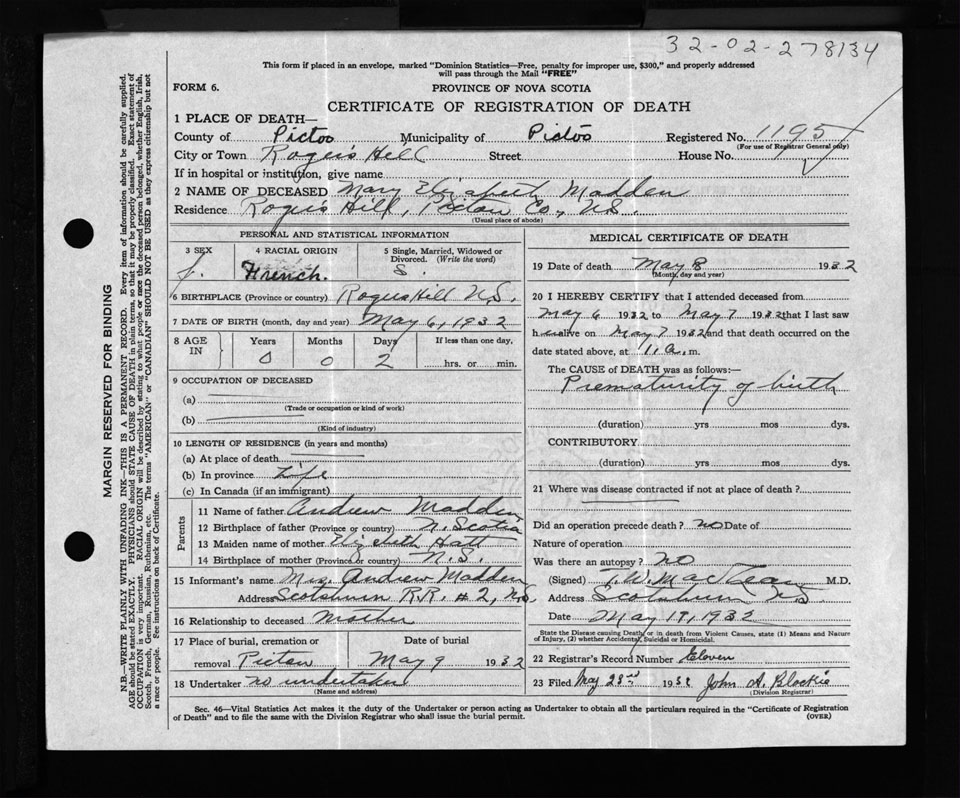 32-02-278134
This form if placed in an envelope, marked "Dominion Statistics—Free, penalty for improper use, $300," and properly addressed
will pass through the Mail "FREE"
FORM 6.
PROVINCE OF NOVA SCOTIA
CERTIFICATE OF REGISTRATION OF DEATH
1 PLACE OF DEATH—
County of Pictou Municipality of Pictou Registered No. 1195
(For use of Registrar General only)
City or Town Roger's Hill Street House No.
If in hospital or institution, give name
2 NAME OF DECEASED Mary Elizabeth Madden
Residence Roger's Hill, Pictou Co., N.S.
(Usual place of abode)
PERSONAL AND STATISTICAL INFORMATION
3 SEX 4 RACIAL ORIGIN 5 Single, Married, Widowed or
Divorced. (Write the word)
f. French. S.
6 BIRTHPLACE (Province or country) Rogers Hill N.S.
7 DATE OF BIRTH (month, day and year) May 6, 1932
8 AGE IN Years Months Days If less than one day,
0 0 2 hrs. or min.
9 OCCUPATION OF DECEASED
(a)
(Trade or occupation or kind of work)
(b)
(Kind of industry)
10 LENGTH OF RESIDENCE (in years and months)
(a) At place of death
(b) In province Life
(c) In Canada (if an immigrant)
Parents
11 Name of father Andrew Madden
12 Birthplace of father (Province or country) N. Scotia
13 Maiden name of mother Elizabeth Hatt
14 Birthplace of mother (Province or country) N.S.
15 Informant's name Mrs. Andrew Madden
Address Scotsburn R.R. #2, N.S.
16 Relationship to deceased Mother
17 Place of burial, cremation or Date of burial
removal Pictou May 9 1932
18 Undertaker no undertaker
(Name and address)
MEDICAL CERTIFICATE OF DEATH
19 Date of death May 8 1932
(Month, day and year)
20 I HEREBY CERTIFY that I attended deceased from
May 6 1932 to May 7 1932 that I last saw
h er alive on May 7 1932 and that death occurred on
date stated above, at 1. a. m.
The CAUSE of DEATH was as follows:—
Prematurity of birth
(duration) yrs mos dys.
CONTRIBUTORY
(duration) yrs mos dys.
21 Where was disease contracted if not at place of death?
Did an operation precede death? no Date of
Nature of operation
Was there an autopsy? no
(Signed) T. W. MacLean M.D.
Address Scotsburn N.S.
Date May 19, 1932
State the Disease causing Death, or in death from Violent Causes, state (1) Means and Nature
of Injury, (2) whether Accidental, Suicidal or Homicidal.
22 Registrar's Record Number Eleven
23 Filed May 23rd 1932 John A. Blackie
(Division Registrar)
Sec. 46—Vital Statistics Act makes it the duty of the Undertaker or person acting as Undertaker to obtain all the particulars required in the "Certificate of Registration
of Death" and to file the same with the Division Registrar who shall issue the burial permit.
(OVER)
MARGIN RESERVED FOR BINDING
N.B.—WRITE PLAINLY WITH UNFADING INK—THIS IS A PERMANENT RECORD. Every item of information should be carefully supplied.
AGE should be stated EXACTLY. PHYSICIANS should STATE CAUSE OF DEATH in plain terms, so that it may be properly classified. Exact statement of
OCCUPATION is very important. RACIAL ORIGIN will be described by stating to what people or race the deceased person belonged, whether English, Irish,
Scotch, French, German, Russian, Ruthenian, etc. The terms "AMERICAN" or "CANADIAN" SHOULD NOT BE USED as they express citizenship but not
a race or people. See instructions on back of Certificate.